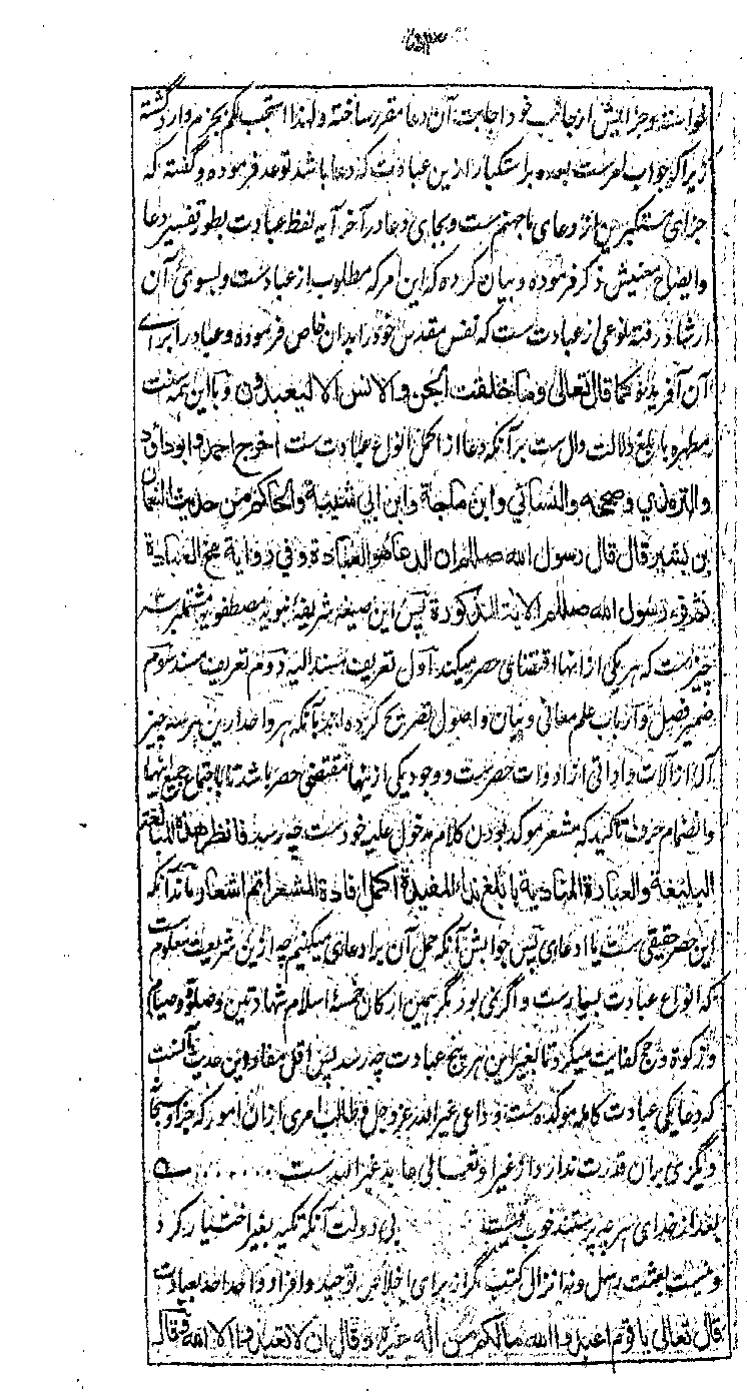 خواسته و جزایش از جانب خود اجابت آن دعا مقرر ساخته و لهذا استجب لکم بجزم وارد گشته
زیرا که جواب امرست بعده بر استکبار ازین عبادت که دعا باشد توعد فرموده و گفته که
جزای مستکبرین از دعای ما جهنم ست و بجای دعا در آخر آیه لفظ عبادت بطور تفسیر دعا
و ایضاح معنیش ذکر فرموده و بیان کرده که این امر که مطلوب از عبادست و بسوئ آن
ارشاد رفته نوعی از عبادت ست که نفس مقدس خود را بدان خاص فرموده و عباد را برای
آن آفریده کما قال تعالی وما خلقت الجن والانس الا لیعبدون و با این همه سنت
مطهره بابلغ دلالت دال ست بر آنکه دعا از اکمل انواع عبادت ست اخرج احمد وابوداؤد
والترمذي وصححه والنسائي وابن ماجة وابن ابي شيبة والحاكم من حديث النعمان
بن بشير قال قال رسول الله صللم ان الدعاء هو العبادة وفي رواية مخ العبادة
ثم قرء رسول الله صللم الاية المذكورة پس این صیغۂ شریفۂ نبویه مصطفویه مشتمل بر سه
چیز است که هر یکی از انها اقتضای حصر میکند اول تعریف مسند الیه دوم تعریف مسند سوم
ضمیر فصل و ارباب علم معانی و بیان و اصول تصریح کرده اند بآنکه هر واحد ازین هر سه چیز
آلۂ از آلات و اداتی از ادوات حصرست و وجود یکی ازینها مقتضی حصر باشد تا باجتماع جمیع اینها
و انضمام حرف تاکید که مشعر موکد بودن کلام مدخول علیه خودست چه رسد فانظر هذه المبالغة
البليغة والعبارة المنادية بابلغ نداء المفيدة اكمل افادة المشعرة اتم اشعار با آنکه
این حصر حقیقی ست یا ادعای پس جوابش آنکه حمل آن بر ادعای میکنیم چه ازین شریعت معلوم ست
که انواع عبادت بسیارست و اگر نمی بود مگر همین ارکان خمسۂ اسلام شهادتین و صلوة و صیام
و زکوة و حج کفایت میکرد تا بغیر این هر پنج عبادت چه رسد پس اقل مفاد این حدیث آنست
که دعا یکی عبادت کامله موکده ست و داعی غیر الله عز و جل و طالب امری از ان امور که جز او سبحانه
دیگری بران قدرت ندارد از غیر او تعالی عابد غیر الله ست
بغیر از خدای هر چه پرستند خوب نیست بی دولت آنکه تکیه بغیر اختیار کرد
و نیست بعثت رسل و نه انزال کتب مگر از برای اخلاص توحید و افراد واحد احد بعبادت
قال تعالی یا قوم اعبدوا الله مالکم من اله غیره وقال ان لا تعبدوا الا الله وقال